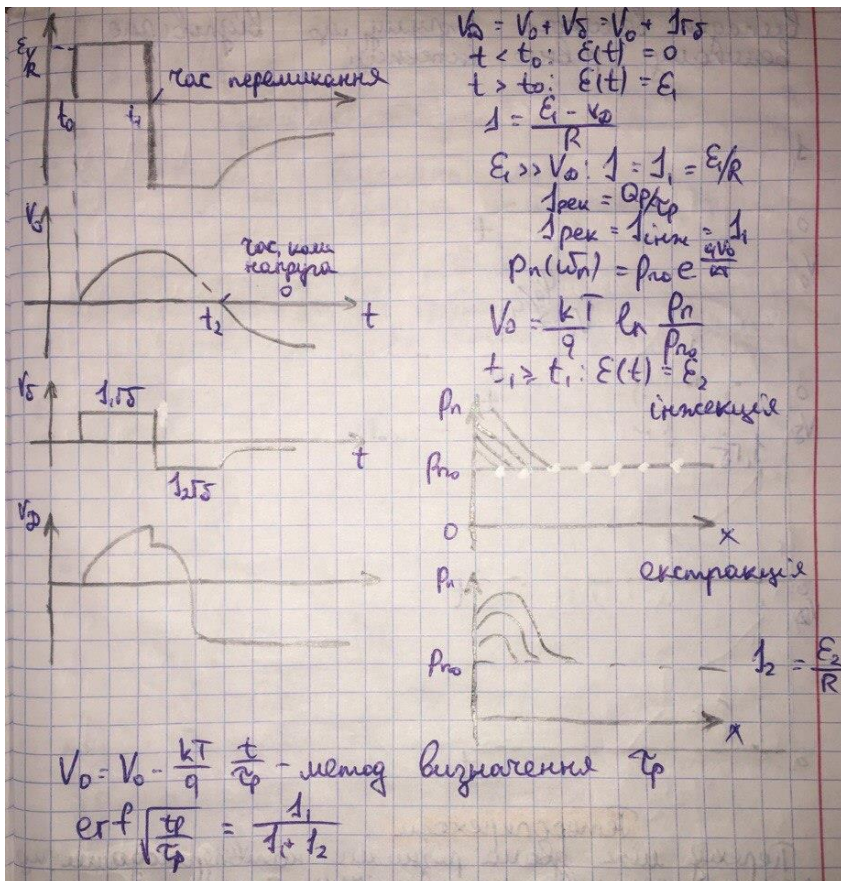 ℰ₁/R
t₀
t₁
час перемикання
V₀
час, коли
напруга
0
t₂
t
Vб
J₁rб
t
J₂rб
V_D
V_D = V₀ + Vб = V₀ + Jrб
t < t₀: ℰ(t) = 0
t > t₀: ℰ(t) = ℰ₁
J = (ℰ₁ - V_D)/R
ℰ₁ >> V_D: J = J₁ = ℰ₁/R
Jрек = Qp/τp
Jрек = Jінж = J₁
pₙ(wₙ) = pₙ₀ e^(qV₀/kT)
V₀ = kT/q ln pₙ/pₙ₀
t₁ ≥ t₁: ℰ(t) = ℰ₂
інжекція
pₙ
pₙ₀
0
x
екстракція
pₙ
pₙ₀
x
J₂ = ℰ₂/R
V_D = V₀ - kT/q t/τp - метод визначення τp
erf √(tp/τp) = J₁/(J₁ + J₂)